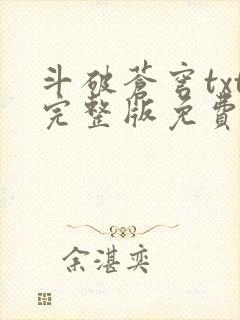 斗破蒼穹txt
完整版免費
余湛奕